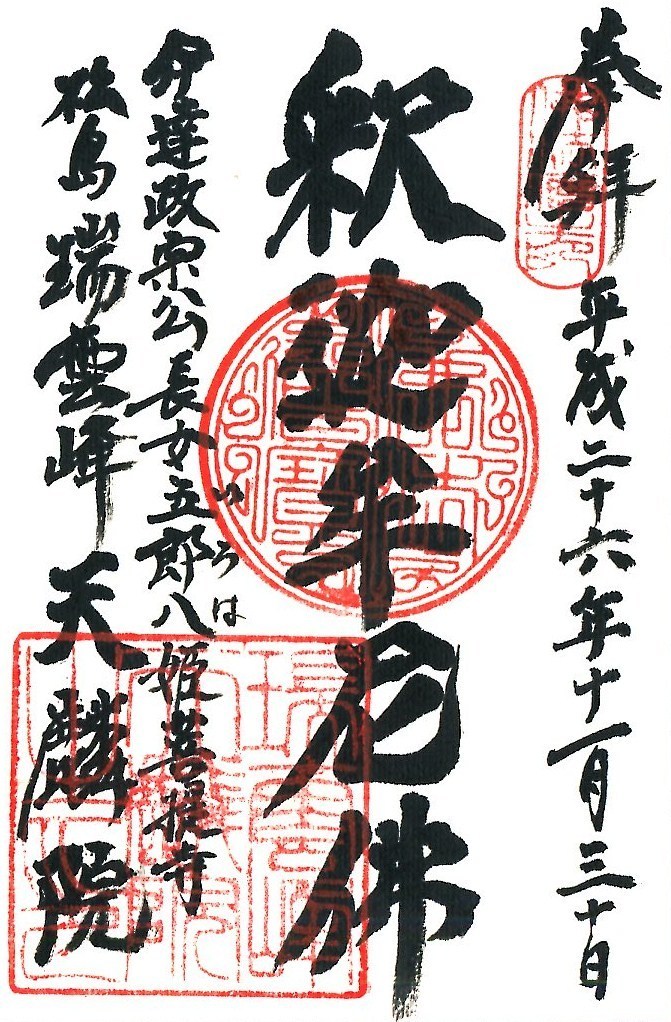 奉拝 平成二十六年十一月三十日
釈迦牟尼佛
伊達政宗公長女五郎八姫菩提寺
いろは
松島 瑞雲峰 天麟院